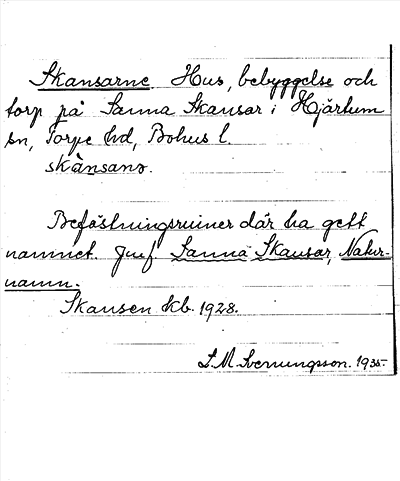 Skansarne. Hus, bebyggelse och
torp på Sanna Skansar i Hjärtum
sn, Torpe hd, Bohus l.
skànsanɔ.
Befästningsruiner där ha gett
namnet. Jmf. Sanna Skansar, Natur-
namn.
Skansen kb. 1928.
S. M. Svenungsson. 1935.